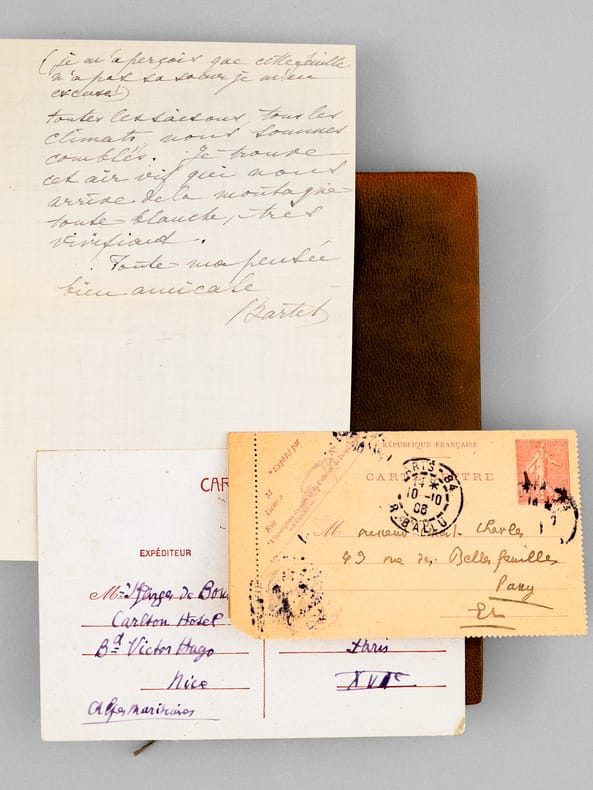 (je m'aperçois que cette feuille
n'a pas sa sœur je m'en
excuse!)
toutes les saisons, tous les
climats nous sommes
comblés. Je trouve
cet air vif qui nous
arrive de la montagne
toute blanche, très
vivifiant.
Toute ma pensée
bien amicale
Bartet
RÉPUBLIQUE FRANÇAISE
Expédié par
M
Rue
PARIS · 84
10-10
08
R. BALLU
M Charles
43 rue des Belles feuilles
Paris
CAR
EXPÉDITEUR
de
Carlton Hotel
Bd Victor Hugo
Nice
Alpes Maritimes
Paris
XVIe